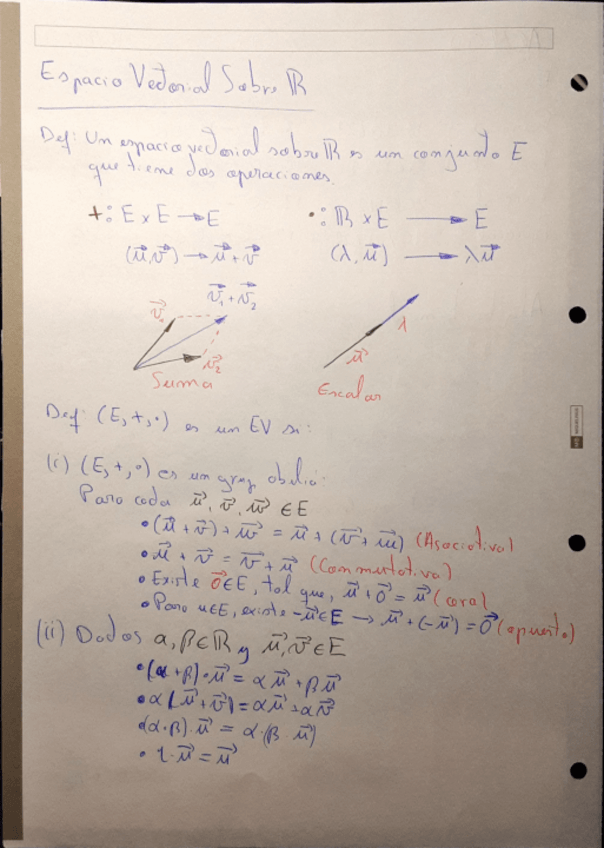 Espacio Vectorial Sobre ℝ
Def: Un espacio vectorial sobre ℝ es un conjunto E
que tiene dos operaciones.
+: E × E → E
•: ℝ × E → E
(u⃗, v⃗) → u⃗ + v⃗
(λ, u⃗) → λu⃗
v⃗₁ + v⃗₂
v⃗₁
v⃗₂
Suma
λ
u⃗
Escalar
Def: (E, +, •) es un EV si:
(i) (E, +, •) es un grup abeliá:
Para cada u⃗, v⃗, w⃗ ∈ E
• (u⃗ + v⃗) + w⃗ = u⃗ + (v⃗ + w⃗) (Asociativa)
• u⃗ + v⃗ = v⃗ + u⃗ (Conmutativa)
• Existe 0⃗ ∈ E, tal que, u⃗ + 0⃗ = u⃗
• Para u ∈ E, existe -u⃗ ∈ E → u⃗ + (-u⃗) = 0⃗ (opuesto)
(ii) Dados α, β ∈ ℝ y u⃗, v⃗ ∈ E
• (α + β) • u⃗ = αu⃗ + βu⃗
• α(u⃗ + v⃗) = αu⃗ + αv⃗
• (α • β) • u⃗ = α • (β • u⃗)
• 1 • u⃗ = u⃗